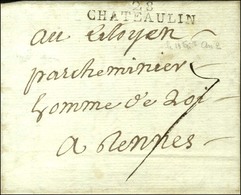 28
CHATEAULIN
au Citoyen
parcheminier
homme de Loi
a Rennes